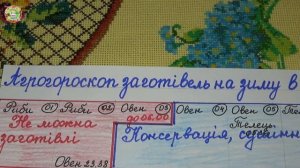 Агрогороскоп заготівель на зиму в
Риби 01 Риби 02 Овен 03 Овен 04 Овен 05
до 06.06 Телець
Не можна
заготівлі
Консервація,
Овен 23.38